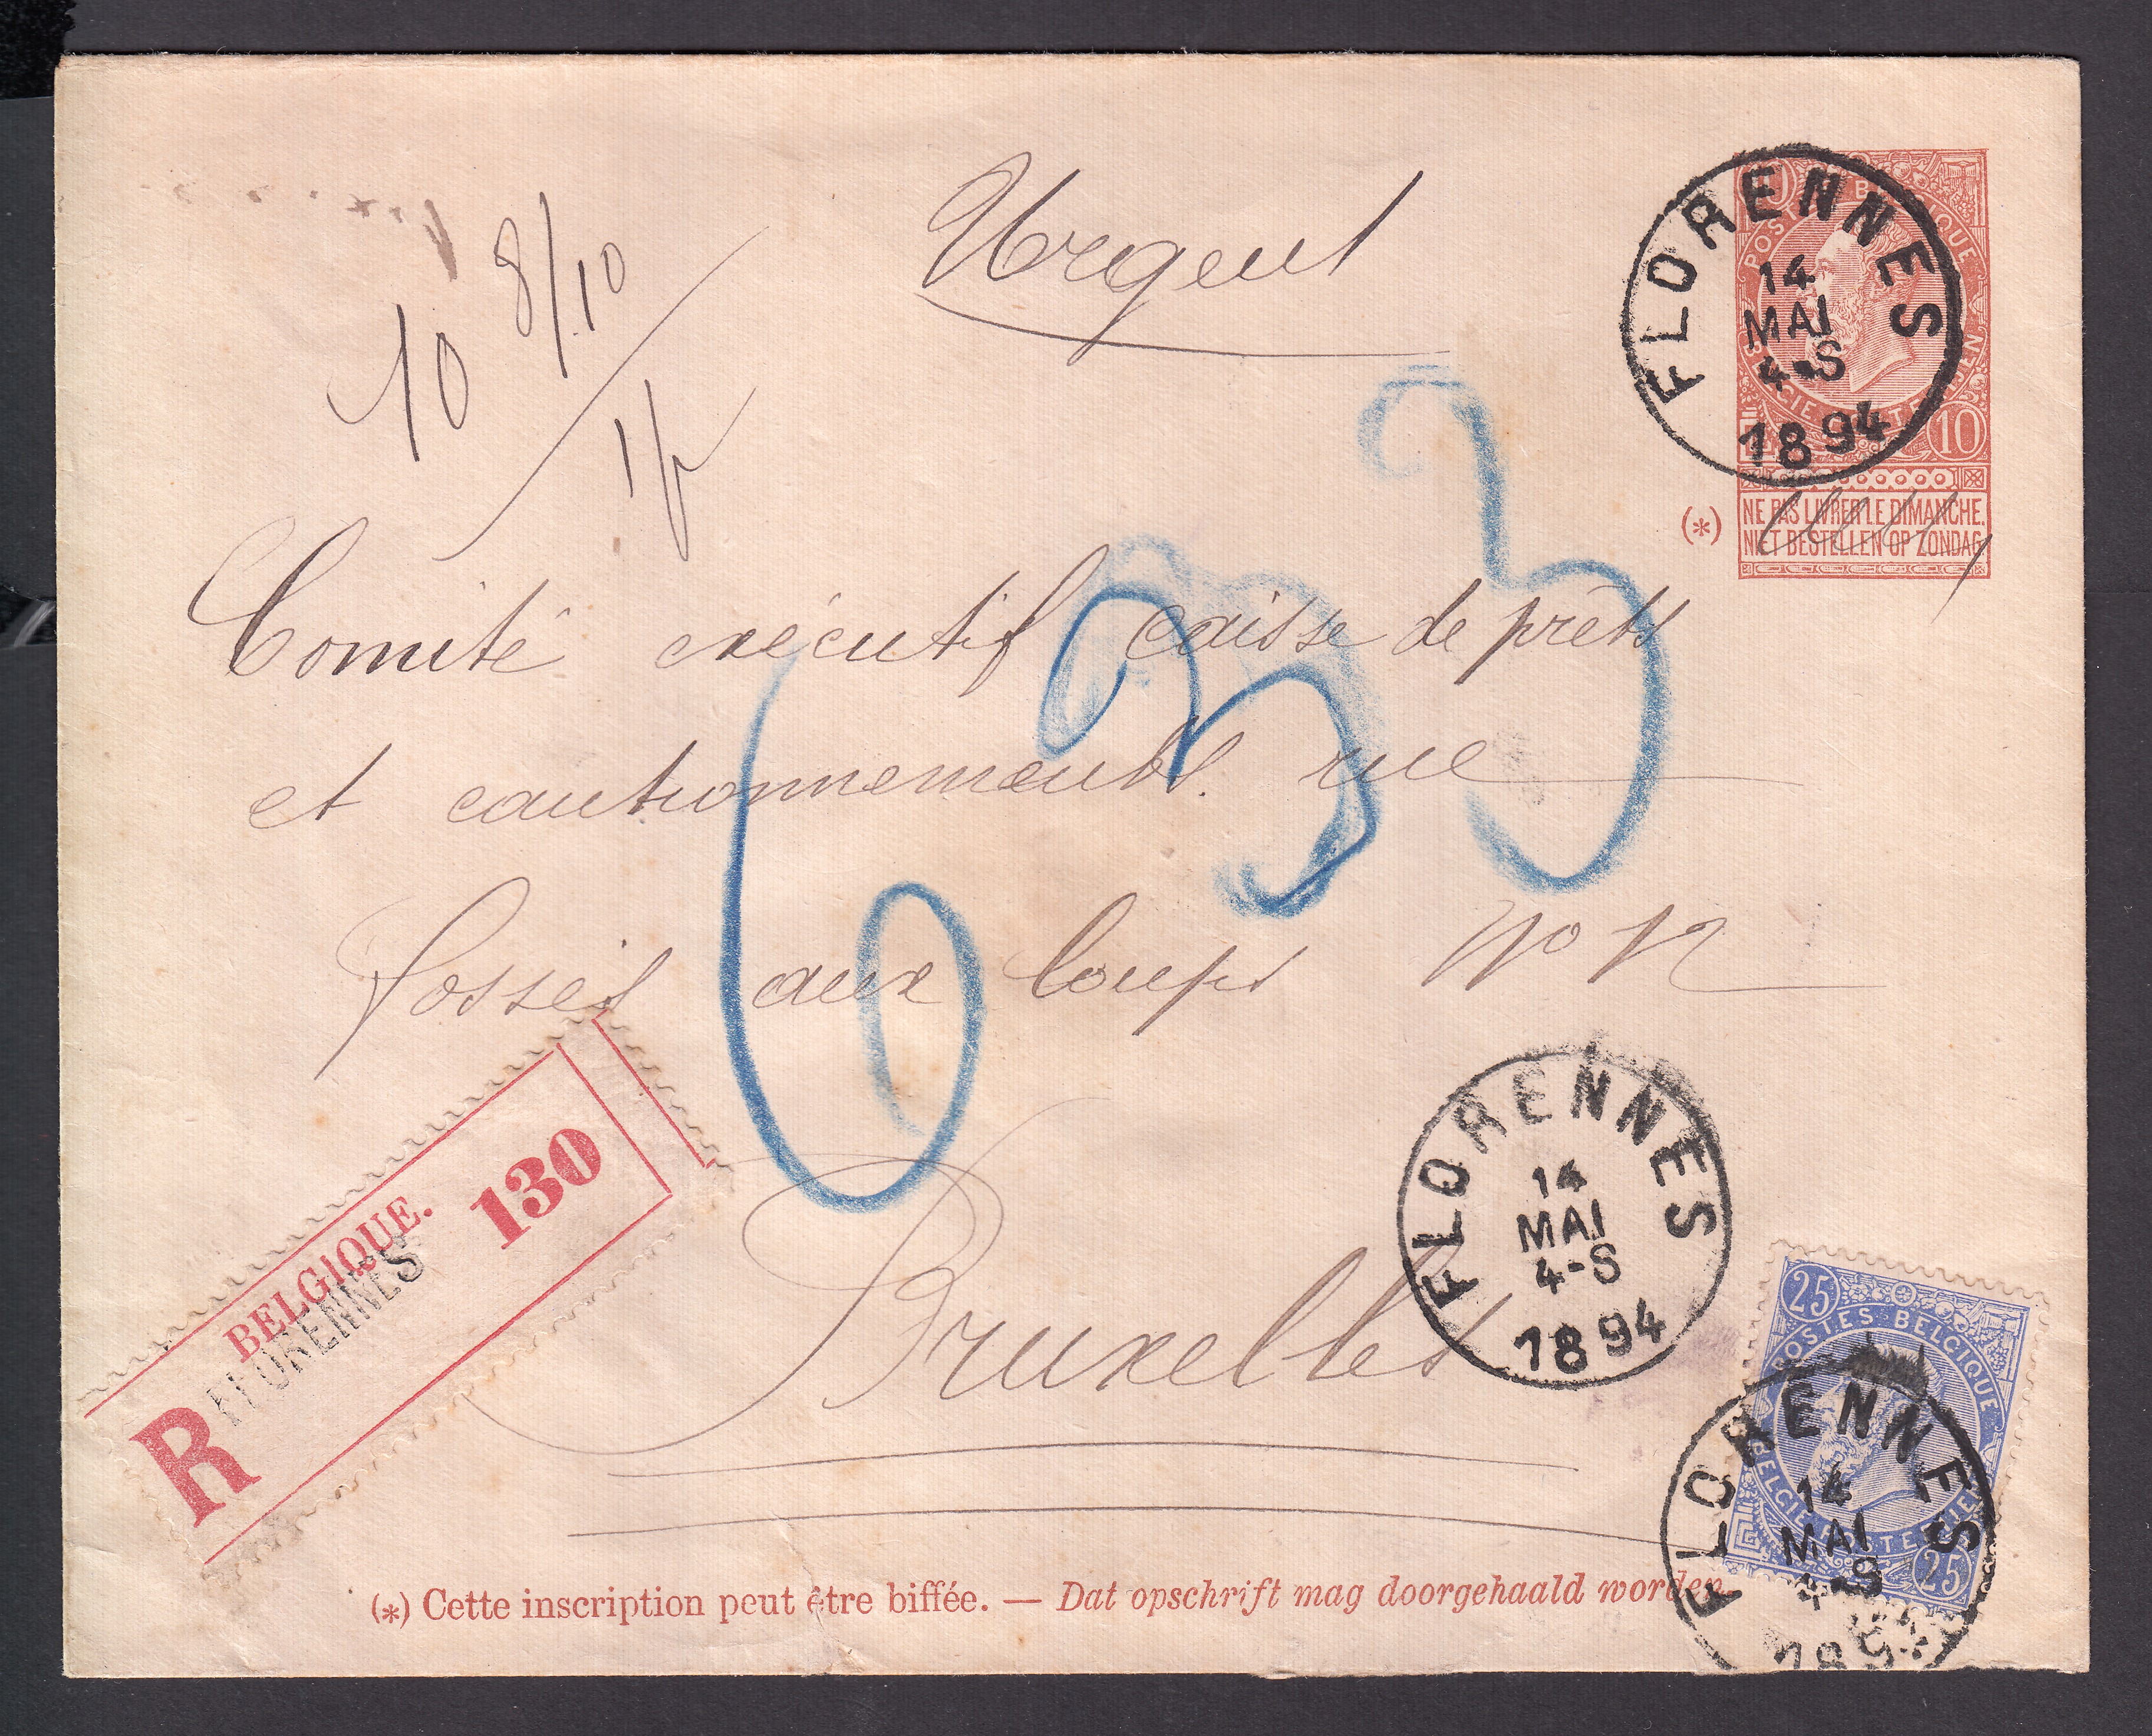 Urgent
10 8/10
FLORENNES
14
MAI
4-S
1894
10
POSTES BELGIQUE
BELGIE POSTERIJEN
10
(*)
NE PAS LIVRER LE DIMANCHE.
NIET BESTELLEN OP ZONDAG.
633
Comité exécutif caisse de prêts
et cautionnements. rue
Fossés aux loups No 12
Bruxelles
BELGIQUE.
FLORENNES
R
130
FLORENNES
14
MAI
4-S
1894
25
POSTES BELGIQUE
BELGIE POSTERIJEN
25
FLORENNES
14
MAI
4-S
189
(*) Cette inscription peut être biffée. — Dat opschrift mag doorgehaald worden.